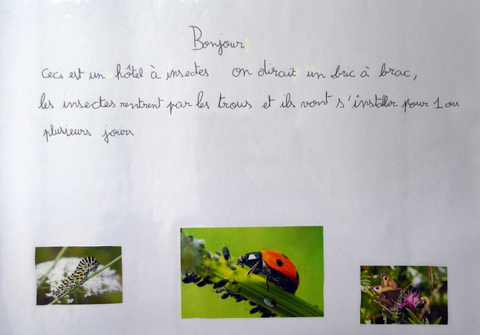 Bonjour
ceci est un hôtel à insectes on dirait un bric à brac,
les insectes rentrent par les trous et ils vont s'installer pour 1 ou
plusieurs jours